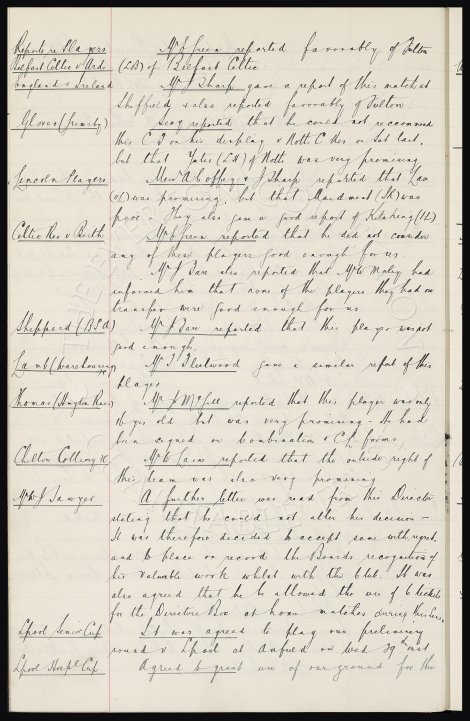 Reports re Players Mr E Green reported favorably of Fulton
Belfast Celtic v Ards (LB) of Belfast Celtic
England v Ireland Mr J Sharp gave a report of this match at
Sheffield & also reported favorably of Fulton.
Glover (Grimsby) Secy reported that he could not recommend
this C.F on his display v Notts C Res on Sat last,
but that Yates (LH) of Notts was very promising
Lincoln Players Messrs A Coffey & J Sharp reported that Lax
(OL) was promising, but that Maidment (LH) was
poor. They also gave a good report of Keetering (IL)
Celtic Res v Perth Mr E Green reported that he did not consider
any of these players good enough for us.
Mr J Fare also reported that Mr W Maley had
informed him that none of the players they had on
transfer were good enough for us
Sheppard (B.S.A) Mr J Fare reported that this player was not
good enough.
Lamb (Warehousing) Mr T Fleetwood gave a similar report of this
player
Thomas (Huyton Recs) Mr J McGill reported that this player was only
16 yrs old but was very promising. He had
been signed on Combination & C.L forms
Chilton Colliery Mr W Cuff reported that the outside right of
this team was also very promising
Mr W J Sawyer A further letter was read from this Director
stating that he could not alter his decision -
It was therefore decided to accept same with regret,
and to place on record the Boards recognition of
his valuable work whilst with the Club. It was
also agreed that he be allowed the use of 6 tickets
for the Directors Box at home matches during this season
Lpool Senior Cup It was agreed to play our preliminary
round v Lpool at Anfield on Wed 29th inst
Lpool Hospl Cup Agreed to grant use of our ground for the